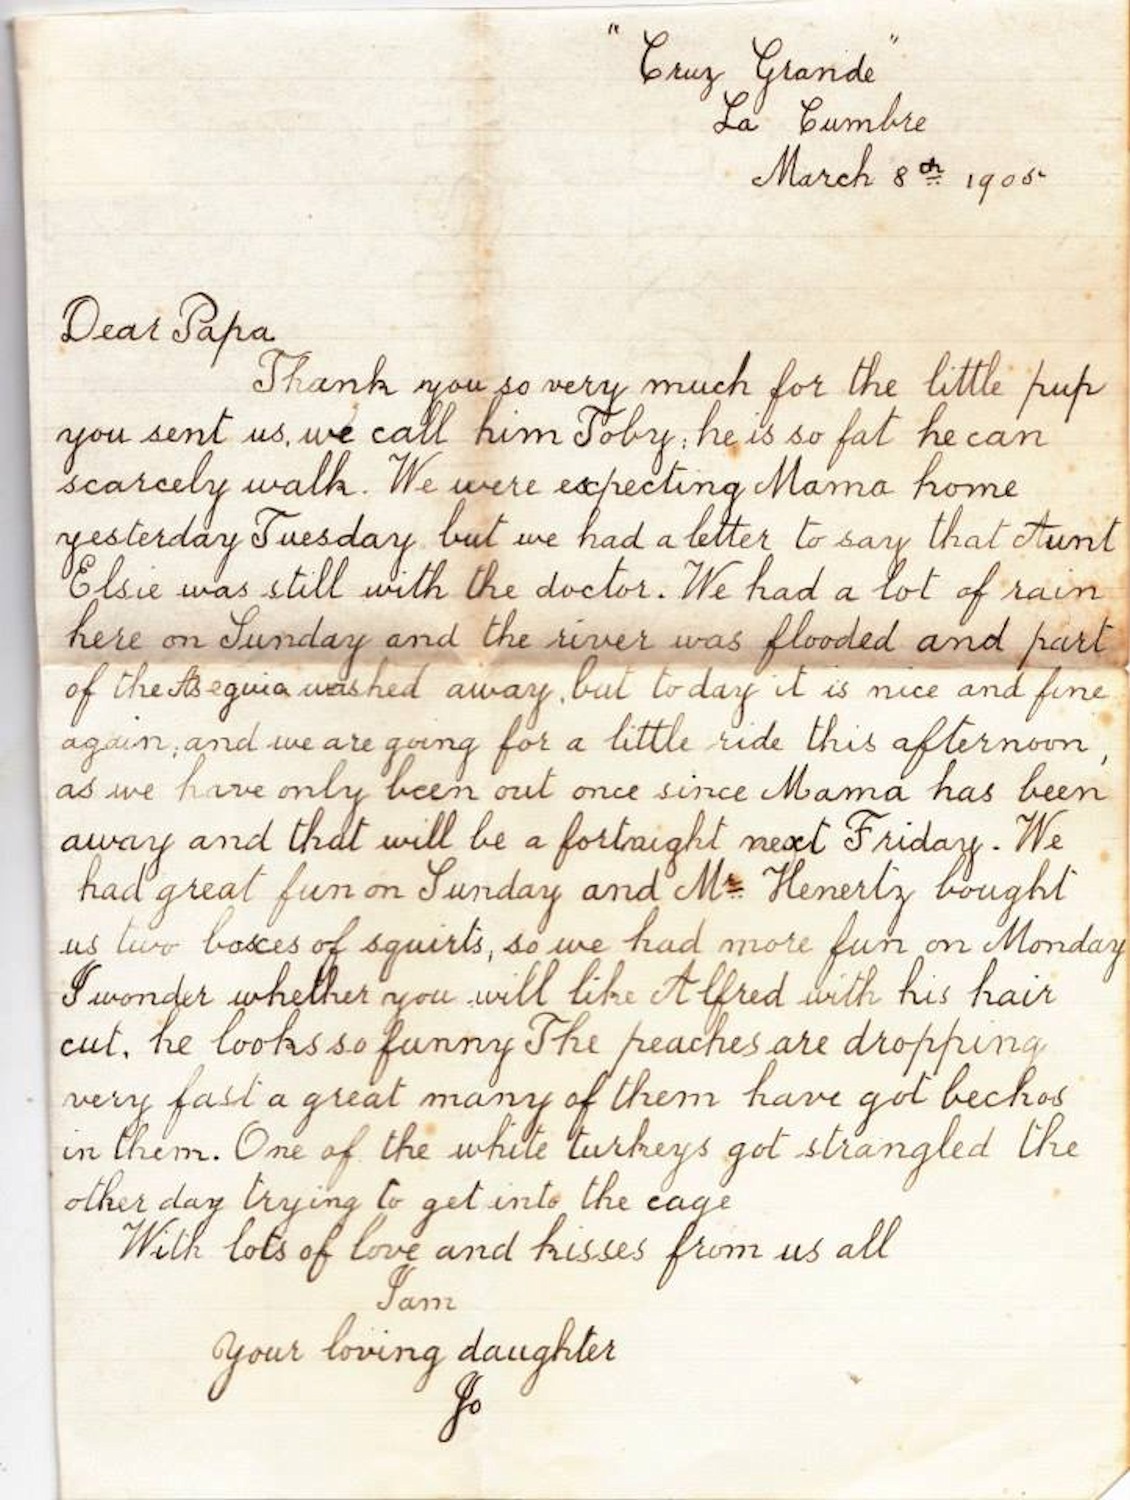 "Cruz Grande"
La Cumbre
March 8th 1905
Dear Papa
Thank you so very much for the little pup
you sent us, we call him Toby; he is so fat he can
scarcely walk. We were expecting Mama home
yesterday Tuesday but we had a letter to say that Aunt
Elsie was still with the doctor. We had a lot of rain
here on Sunday and the river was flooded and part
of the Asequia washed away, but today it is nice and fine
again, and we are going for a little ride this afternoon,
as we have only been out once since Mama has been
away and that will be a fortnight next Friday. We
had great fun on Sunday and Mr. Henertz bought
us two boxes of squirts, so we had more fun on Monday
I wonder whether you will like Alfred with his hair
cut, he looks so funny The peaches are dropping
very fast a great many of them have got bechos
in them. One of the white turkeys got strangled the
other day trying to get into the cage
With lots of love and kisses from us all
I am
Your loving daughter
Jo